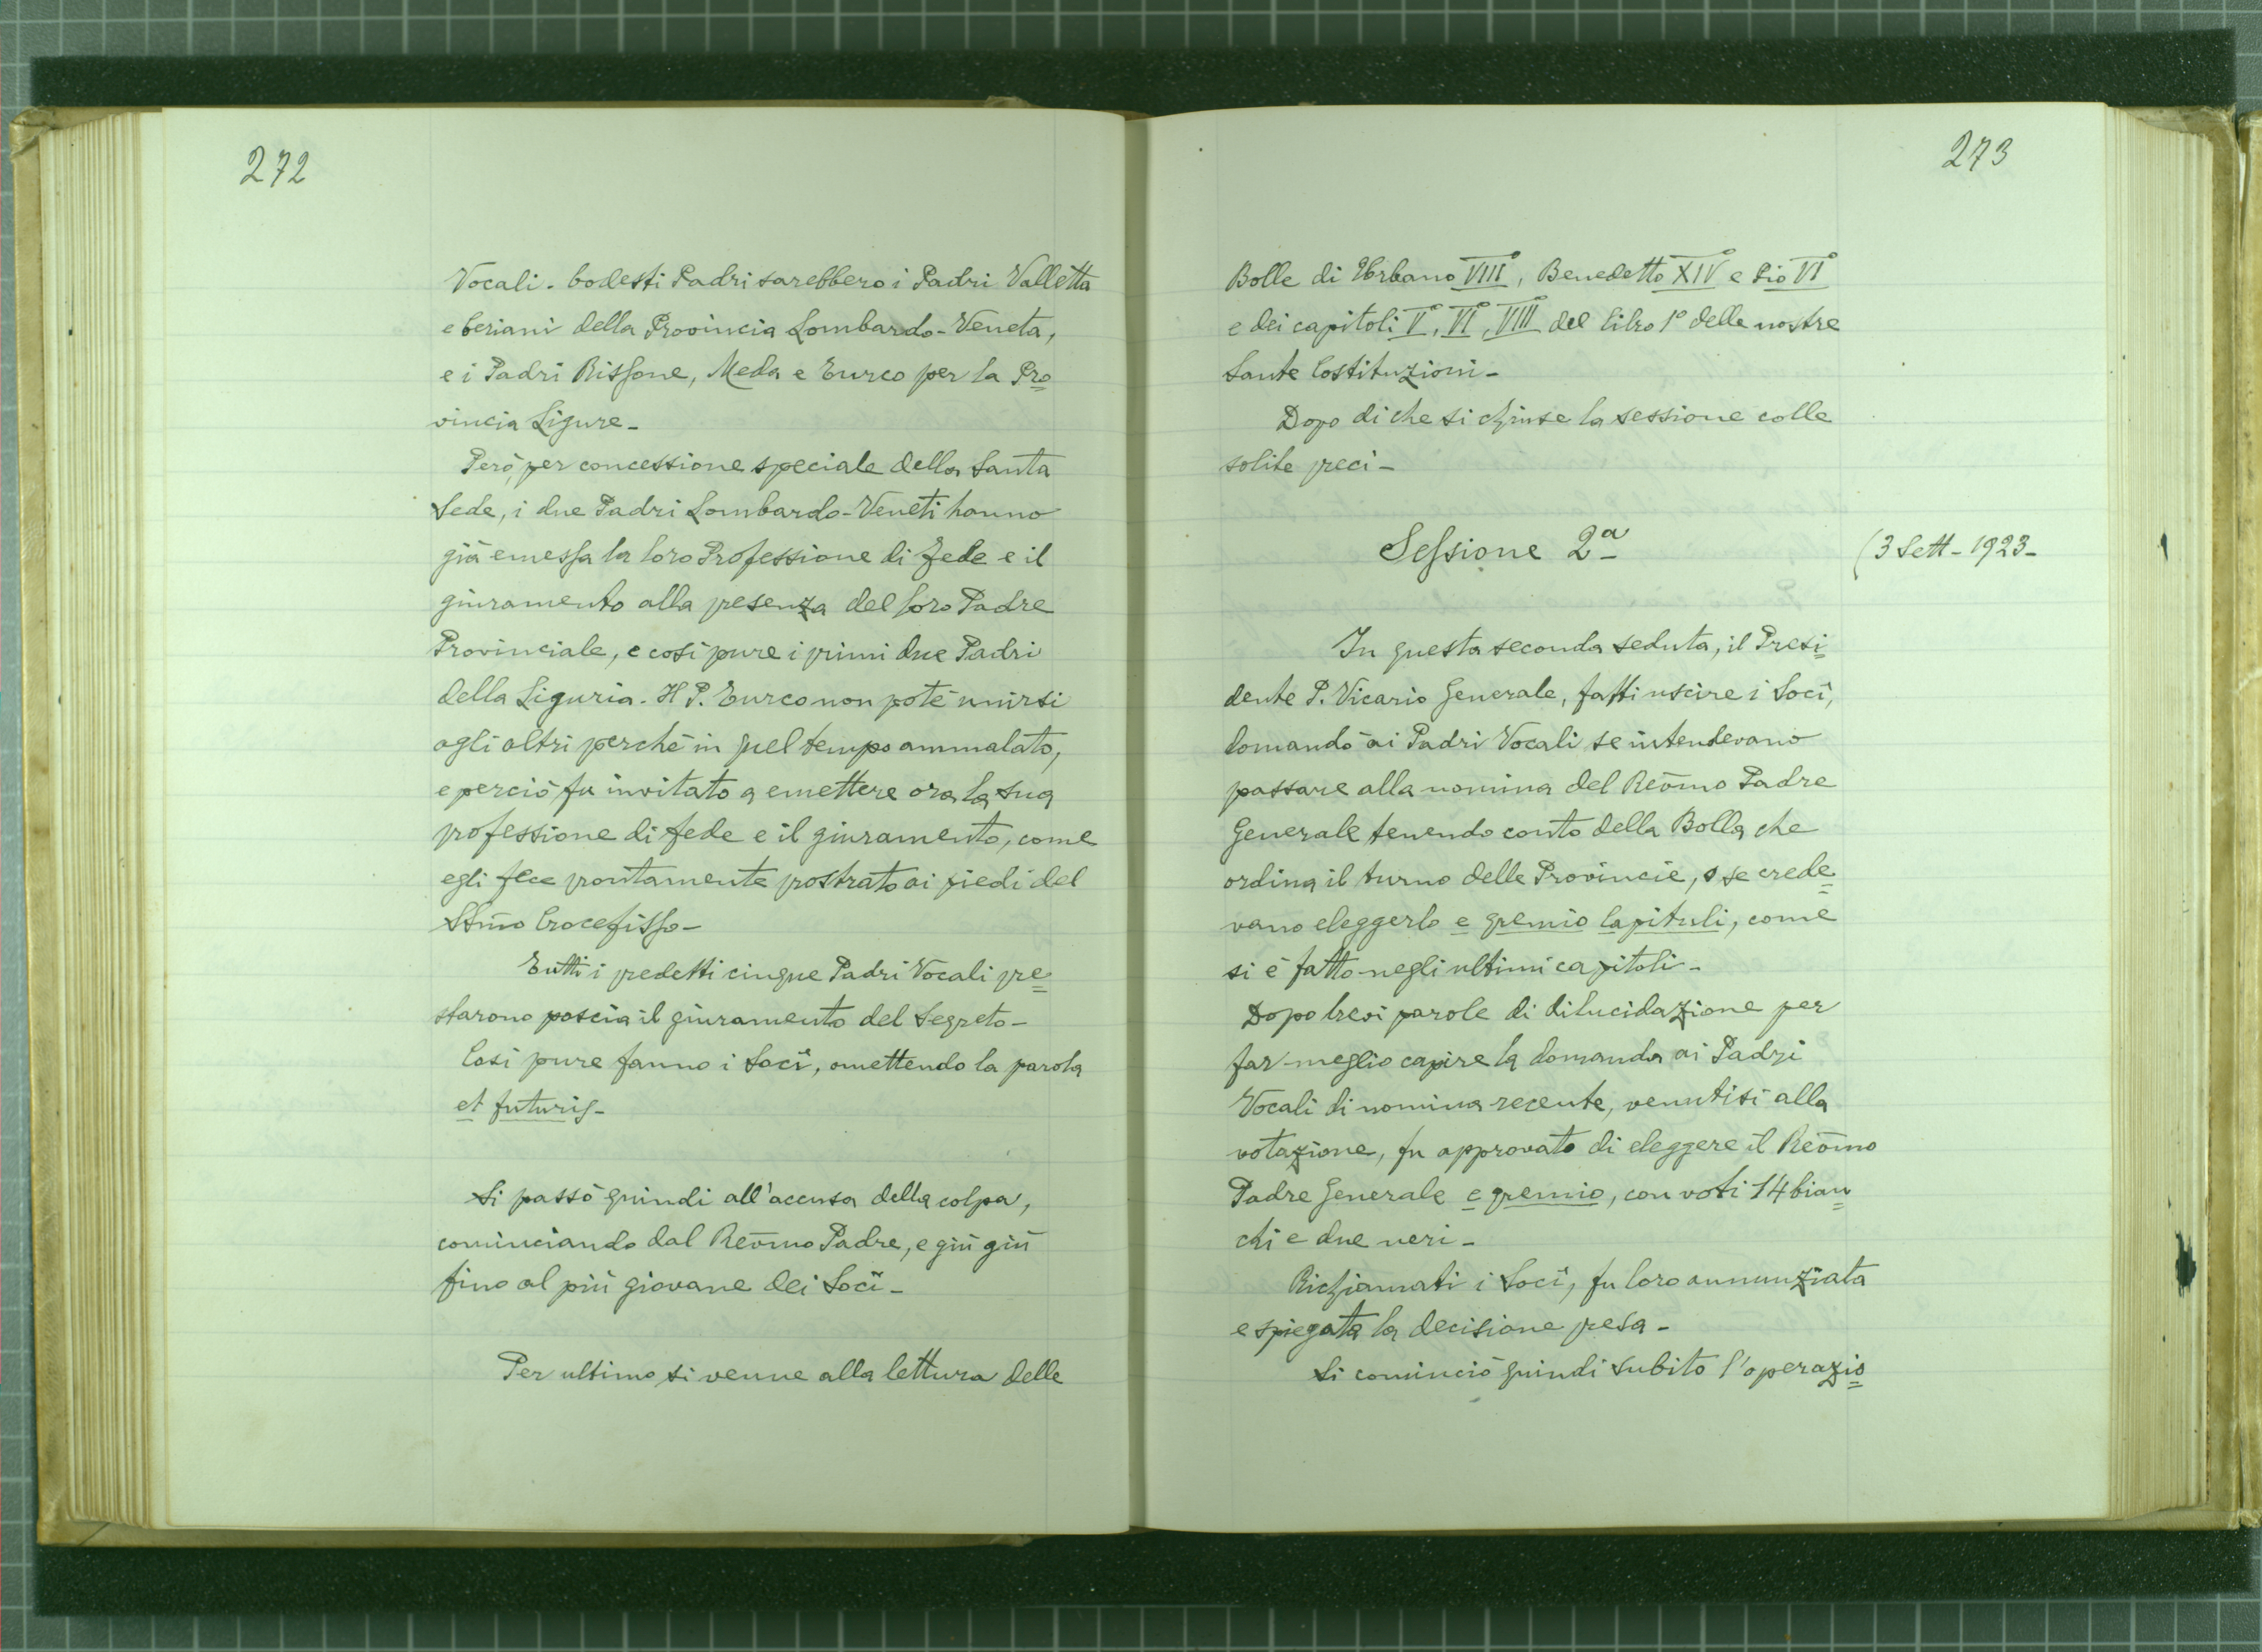 272
Vocali. Codesti Padri sarebbero i Padri Valletta
e Ceriani della Provincia Lombardo-Veneta,
e i Padri Rissone, Meda e Turco per la Pro=
vincia Ligure-
Però, per concessione speciale della Santa
Sede, i due Padri Lombardo-Veneti hanno
già emessa la loro Professione di Fede e il
giuramento alla presenza del loro Padre
Provinciale, e così pure i primi due Padri
della Liguria. Il P. Turco non poté unirsi
agli altri perché in quel tempo ammalato,
e perciò fu invitato a emettere ora la sua
professione di fede e il giuramento, come
egli fece prontamente prostrato ai piedi del
SSmo Crocefisso-
Tutti i predetti cinque Padri Vocali pre=
starono poscia il giuramento del Segreto-
Così pure fanno i Soci, omettendo la parola
et futuris-
Si passò quindi all'accusa della colpa,
cominciando dal Revmo Padre, e giù giù
fino al più giovane dei Soci-
Per ultimo si venne alla lettura delle
273
Bolle di Urbano VIII°, Benedetto XIV° e Pio VI°
e dei capitoli V°, VI°, VIII° del libro 1° delle nostre
Sante Costituzioni-
Dopo di che si chiuse la sessione colle
solite preci-
Sessione 2ª
(3 Sett- 1923-
In questa seconda seduta, il Presi=
dente P. Vicario Generale, fatti uscire i Soci,
domandò ai Padri Vocali se intendevano
passare alla nomina del Revmo Padre
Generale tenendo conto della Bolla che
ordina il turno delle Provincie, o se crede=
vano eleggerlo e gremio Capituli, come
si è fatto negli ultimi capitoli-
Dopo brevi parole di dilucidazione per
far meglio capire la domanda ai Padri
Vocali di nomina recente, venutisi alla
votazione, fu approvato di eleggere il Revmo
Padre Generale e gremio, con voti 14 bian=
chi e due neri-
Richiamati i Soci, fu loro annunziata
e spiegata la decisione presa-
Si cominciò quindi subito l'operazio=